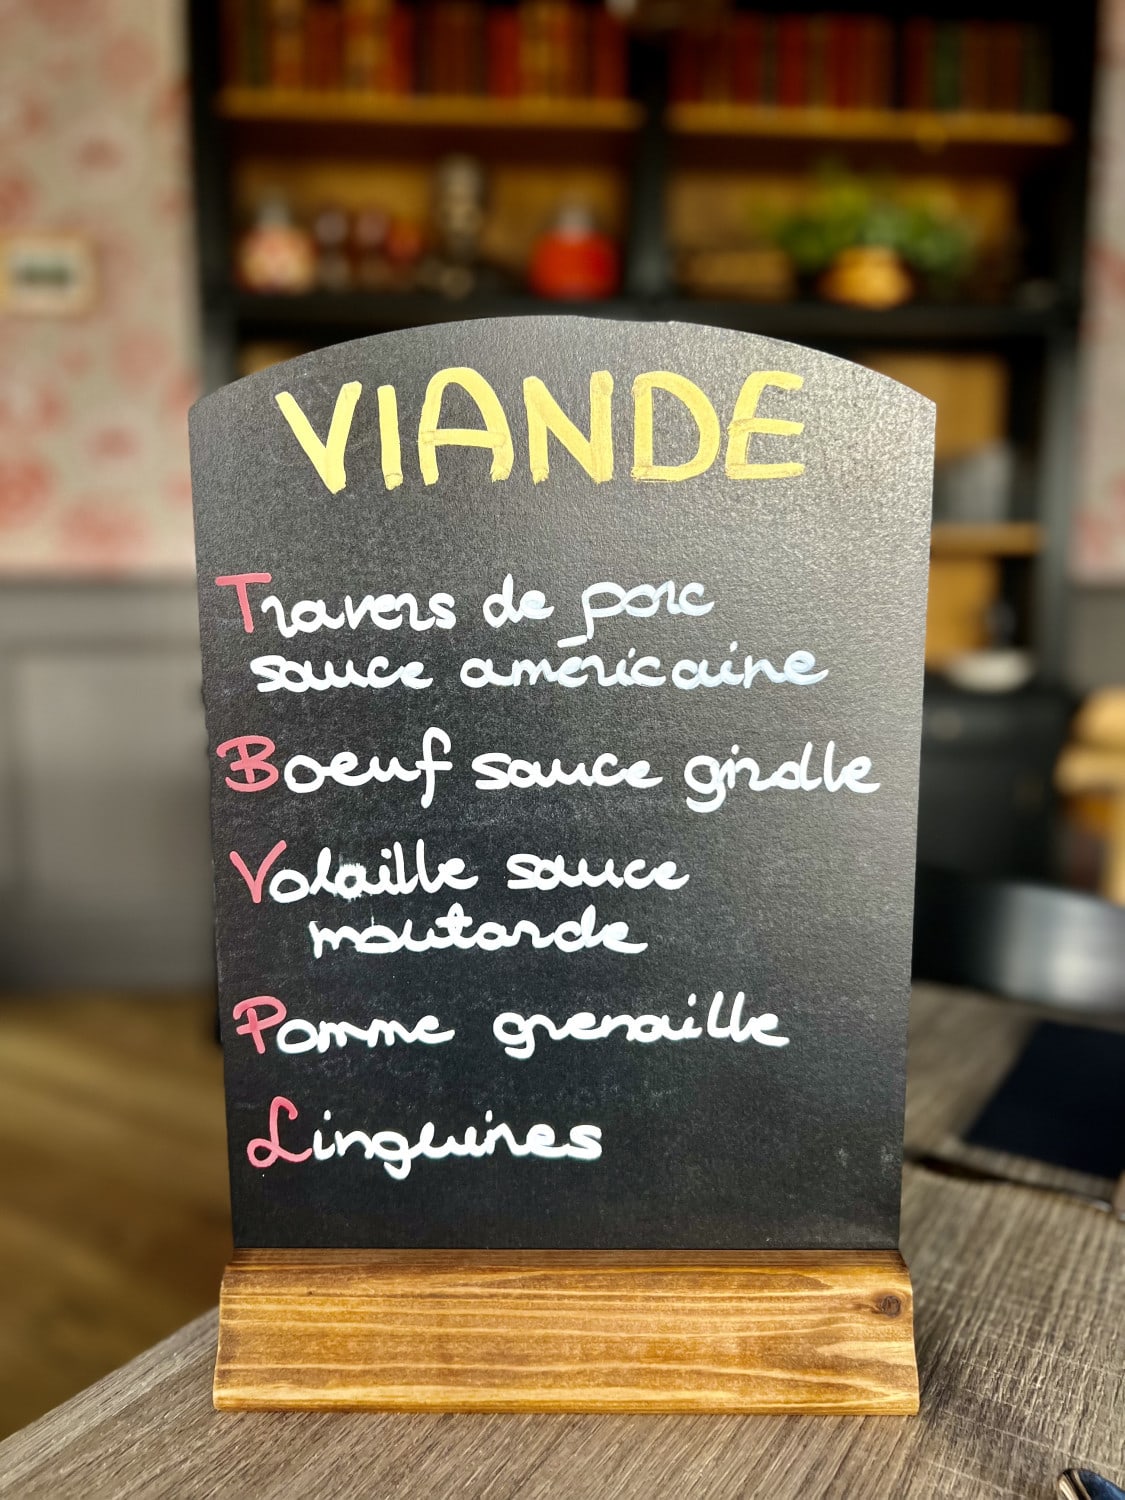 VIANDE
Travers de porc
sauce américaine
Boeuf sauce girolle
Volaille sauce
moutarde
Pomme grenaille
Linguines